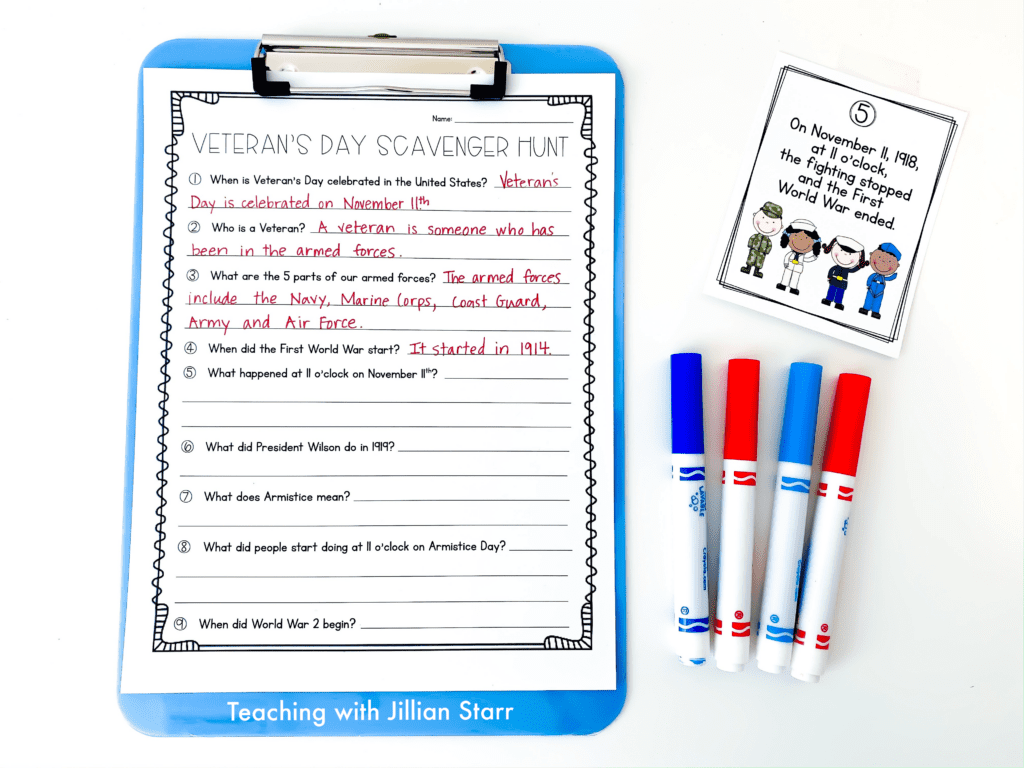 Name:
VETERAN'S DAY SCAVENGER HUNT
① When is Veteran's Day celebrated in the United States? Veteran's
Day is celebrated on November 11th
② Who is a Veteran? A veteran is someone who has
been in the armed forces.
③ What are the 5 parts of our armed forces? The armed forces
include the Navy, Marine Corps, Coast Guard,
Army and Air Force.
④ When did the First World War start? It started in 1914.
⑤ What happened at 11 o'clock on November 11th?
⑥ What did President Wilson do in 1919?
⑦ What does Armistice mean?
⑧ What did people start doing at 11 o'clock on Armistice Day?
⑨ When did World War 2 begin?
Teaching with Jillian Starr
⑤
On November 11, 1918,
at 11 o'clock,
the fighting stopped
and the First
World War ended.